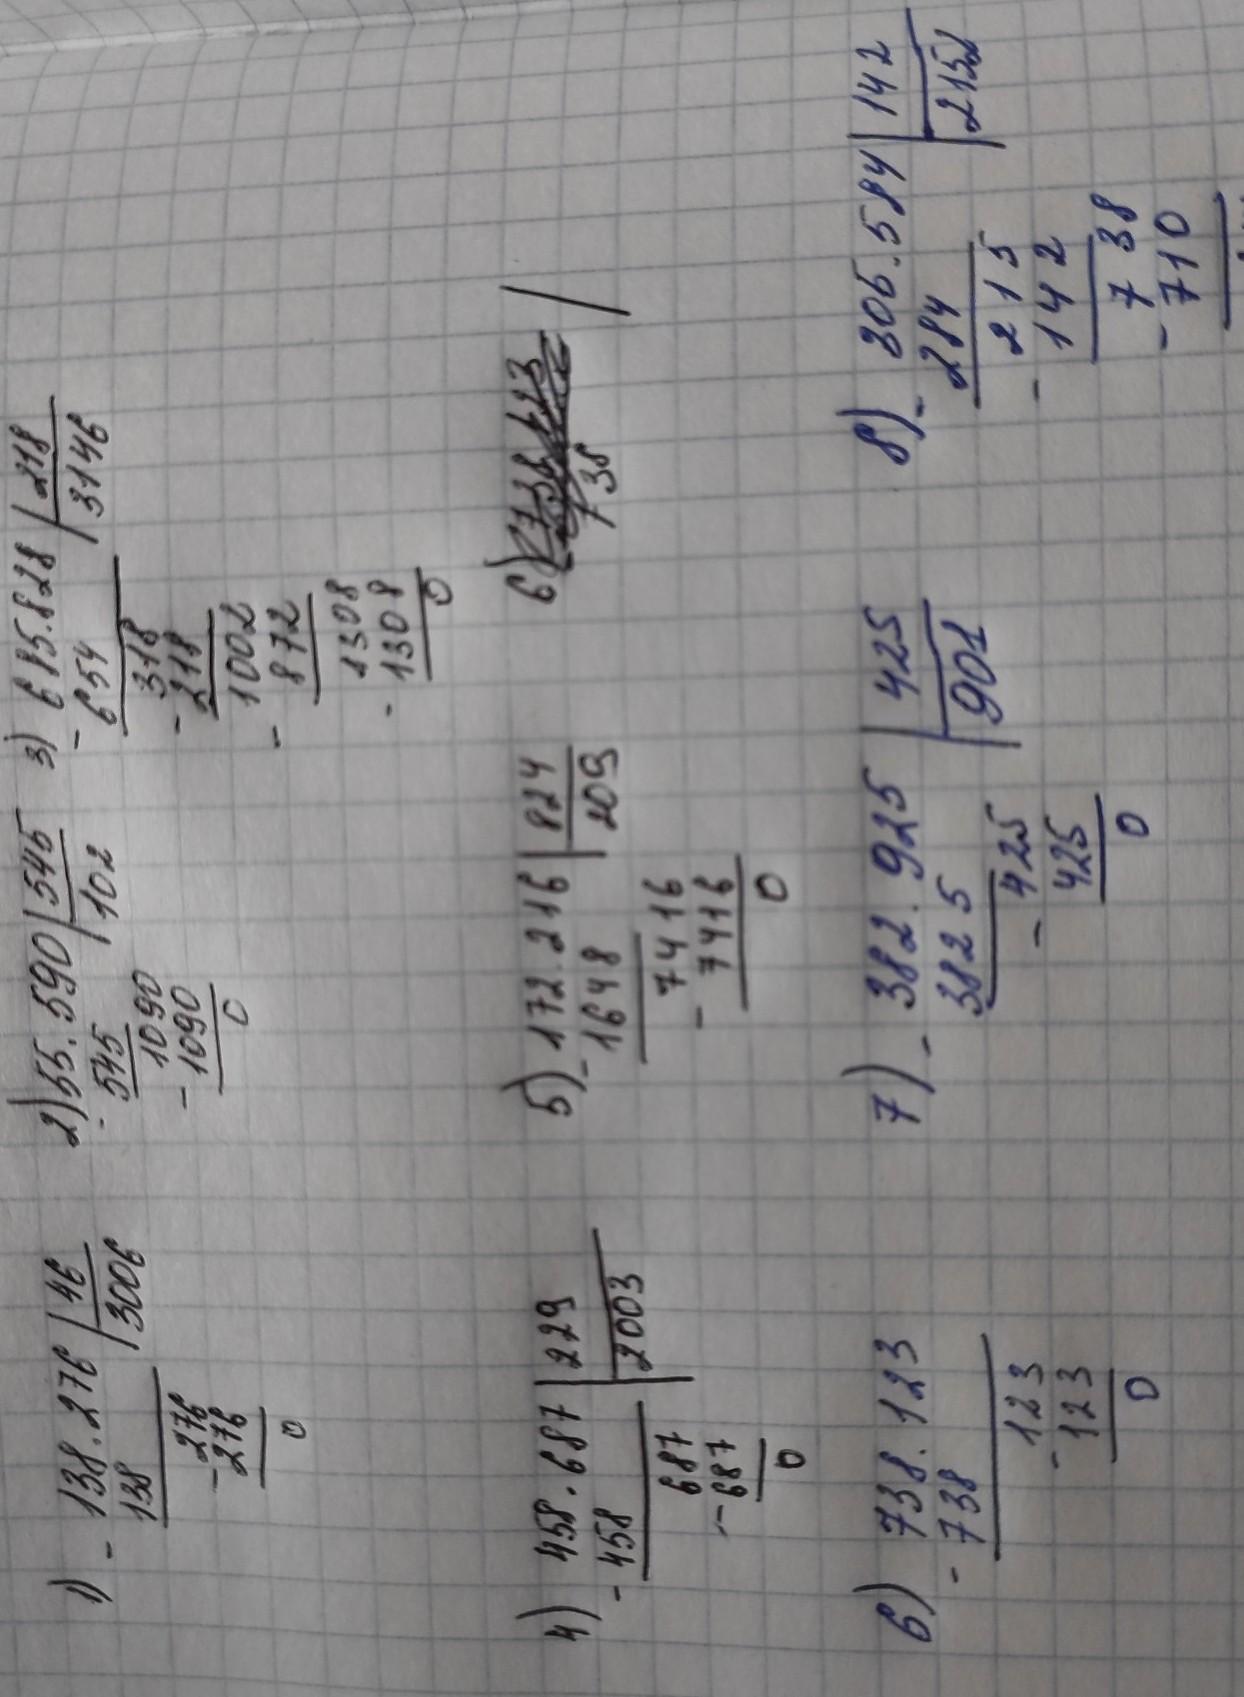 1) - 138.276 | 46
138 | 3006
- 276
276
0
2) 55.590 | 545
- 545 | 102
1090
- 1090
0
3) 685.828 | 218
- 654 | 3146
318
- 218
1002
- 872
1308
- 1308
0
4) 458.687 | 229
- 458 | 2003
687
- 687
0
5) - 172.216 | 824
1648 | 209
7416
- 7416
0
6)
738
6) 738.123
- 738
123
- 123
0
7) - 382.925 | 425
3825 | 901
- 425
425
0
8) - 305.584 | 142
284 | 2152
215
- 142
738
- 710